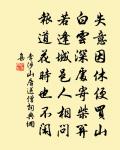 失意因休便買山
白雲深處寄柴關
若逢城邑人相問
報道花時也不閑
李涉山居送僧詩典網
集